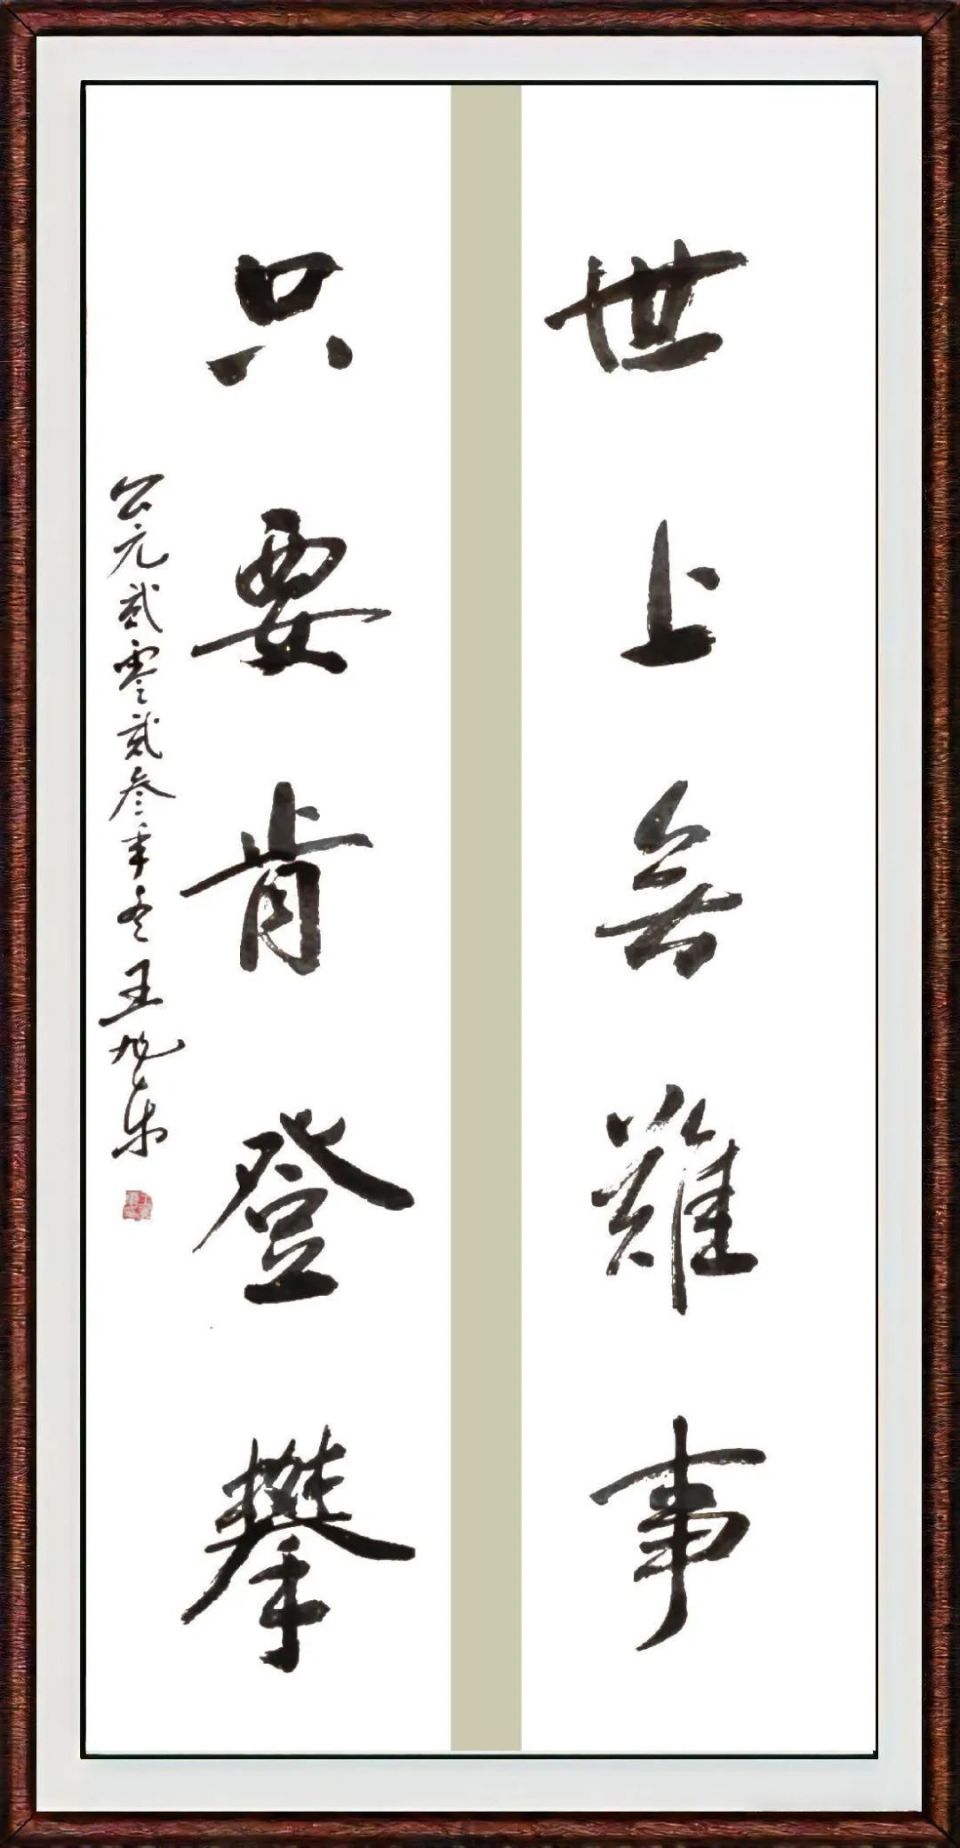 世上無難事
只要肯登攀
公元贰零贰叁年冬王旭东